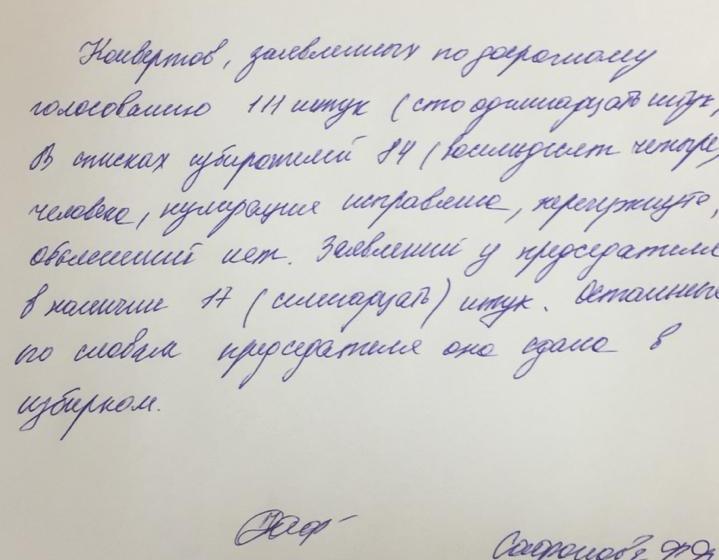 Конвертов, заявленных по досрочному
голосованию 111 штук (сто одиннадцать штук,
В списках избирателей 84 (восемьдесят четыре,
человека, нумерация исправлена, зачеркнута,
объяснений нет. Заявлений у председателя
в наличии 17 (семнадцать) штук. Остальные
по словам председателя она сдала в
избирком.